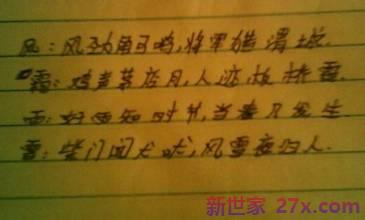 风：风劲角弓鸣，将军猎渭城.
霜：鸡声茅店月，人迹板桥霜.
雨：好雨知时节，当春乃发生
雪：柴门闻犬吠，风雪夜归人.
新世家 27x.com